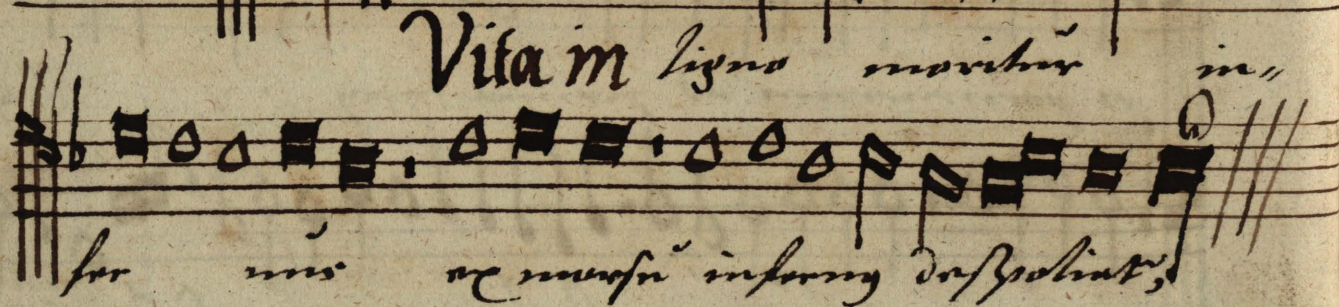 Vita in ligno moritur in=
fer nus ex morsu infernus despoliat,